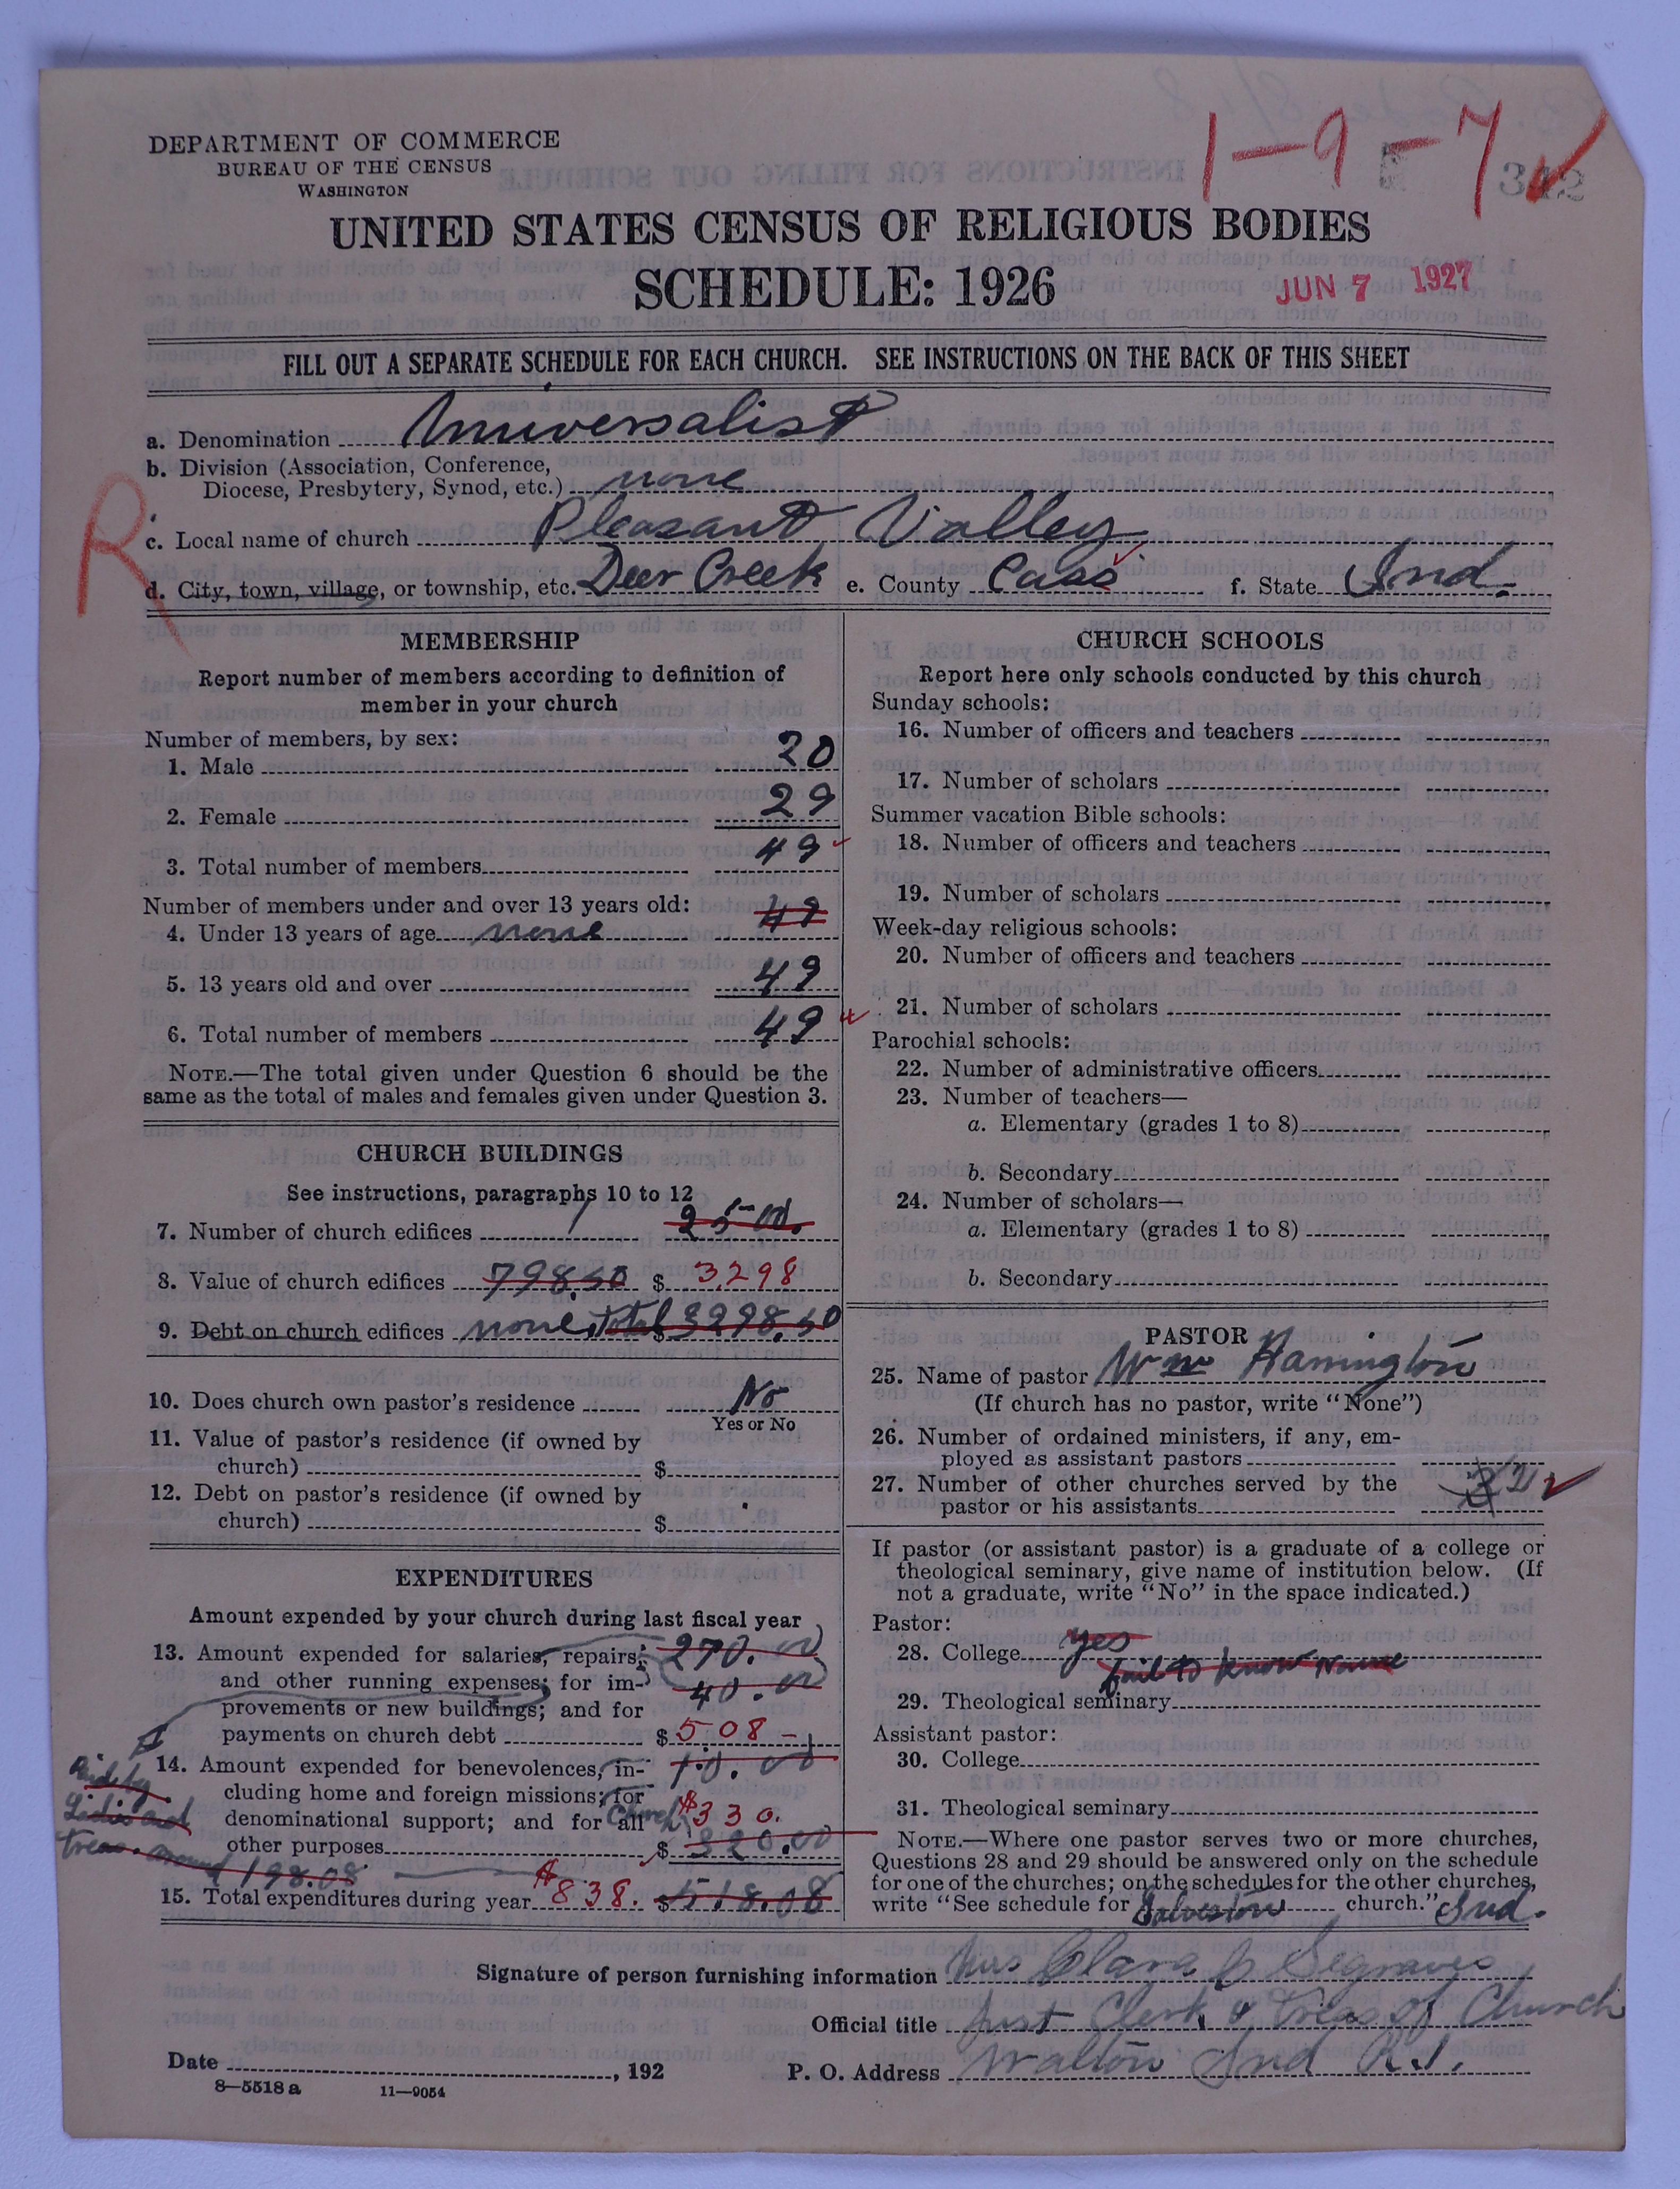 1-9-7
342
DEPARTMENT OF COMMERCE
BUREAU OF THE CENSUS
WASHINGTON
UNITED STATES CENSUS OF RELIGIOUS BODIES
SCHEDULE: 1926
JUN 7 1927
FILL OUT A SEPARATE SCHEDULE FOR EACH CHURCH. SEE INSTRUCTIONS ON THE BACK OF THIS SHEET
a. Denomination Universalist
b. Division (Association, Conference,
Diocese, Presbytery, Synod, etc.) none
R
c. Local name of church Pleasant Valley
d. City, town, village, or township, etc. Deer Creek e. County Cass f. State Ind.
MEMBERSHIP
Report number of members according to definition of
member in your church
Number of members, by sex:
1. Male 20
2. Female 29
3. Total number of members 49
Number of members under and over 13 years old: 49
4. Under 13 years of age none
5. 13 years old and over 49
6. Total number of members 49
NOTE.—The total given under Question 6 should be the
same as the total of males and females given under Question 3.
CHURCH BUILDINGS
See instructions, paragraphs 10 to 12
7. Number of church edifices 1 2500.
8. Value of church edifices 798.50 $ 3298
9. Debt on church edifices none Total $ 3298.50
10. Does church own pastor's residence No
Yes or No
11. Value of pastor's residence (if owned by
church) $
12. Debt on pastor's residence (if owned by
church) $
EXPENDITURES
Amount expended by your church during last fiscal year
13. Amount expended for salaries, repairs, 270.00
and other running expenses; for im- 40.00
provements or new buildings; and for
payments on church debt $ 508-
14. Amount expended for benevolences, in- 10.00
cluding home and foreign missions; for
denominational support; and for all Church $330.
other purposes $ 320.00
Paid by
Ladies and
Treas. 198.08
15. Total expenditures during year $838. $518.08
CHURCH SCHOOLS
Report here only schools conducted by this church
Sunday schools:
16. Number of officers and teachers
17. Number of scholars
Summer vacation Bible schools:
18. Number of officers and teachers
19. Number of scholars
Week-day religious schools:
20. Number of officers and teachers
21. Number of scholars
Parochial schools:
22. Number of administrative officers
23. Number of teachers—
a. Elementary (grades 1 to 8)
b. Secondary
24. Number of scholars—
a. Elementary (grades 1 to 8)
b. Secondary
PASTOR
25. Name of pastor Wm Harrington
(If church has no pastor, write "None")
26. Number of ordained ministers, if any, em-
ployed as assistant pastors
27. Number of other churches served by the
pastor or his assistants 3 2
If pastor (or assistant pastor) is a graduate of a college or
theological seminary, give name of institution below. (If
not a graduate, write "No" in the space indicated.)
Pastor:
28. College yes
fail to know name
29. Theological seminary
Assistant pastor:
30. College
31. Theological seminary
NOTE.—Where one pastor serves two or more churches,
Questions 28 and 29 should be answered only on the schedule
for one of the churches; on the schedules for the other churches,
write "See schedule for Galveston church." Ind.
Signature of person furnishing information Mrs Clara Segraves
Official title Just Clerk & Treas of Church
Date , 192 P. O. Address Walton Ind R.1.
8—5518 a 11—9054